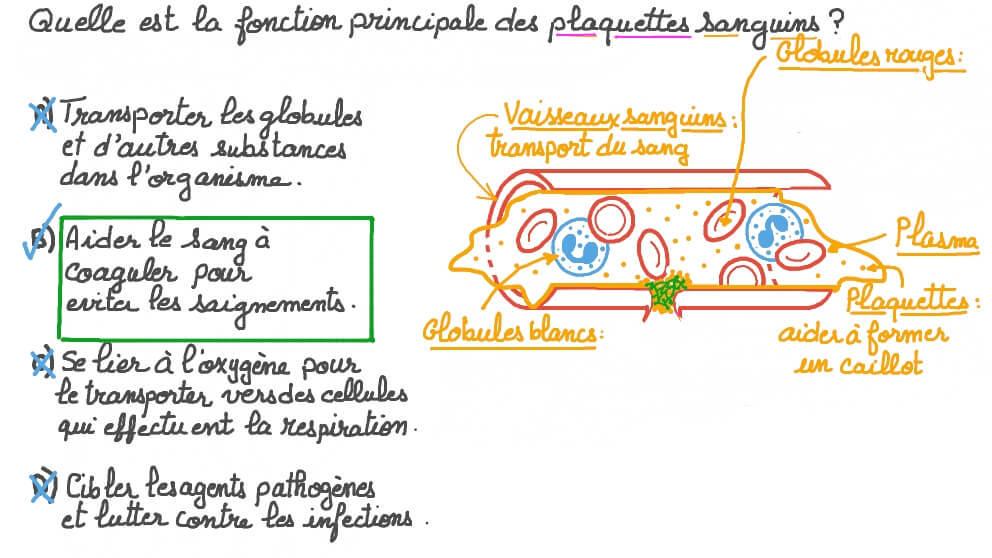 Quelle est la fonction principale des plaquettes sanguins ?
Globules rouges:
A) Transporter les globules
et d'autres substances
dans l'organisme.
Vaisseaux sanguins:
transport du sang
B) Aider le sang à
coaguler pour
eviter les saignements.
Plasma
Plaquettes:
aider à former
un caillot
Globules blancs:
C) Se lier à l'oxygène pour
le transporter vers des cellules
qui effectuent la respiration.
D) Cibler les agents pathogènes
et lutter contre les infections.